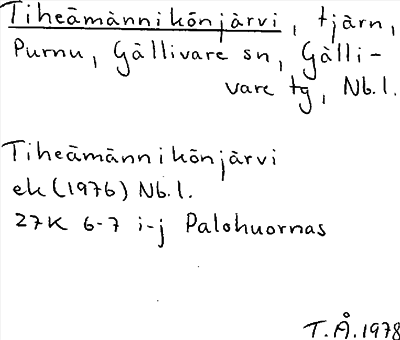 Tiheämännikönjärvi, tjärn,
Purnu, Gällivare sn, Gälli-
vare tg, Nb.l.
Tiheämännikönjärvi
ek (1976) Nb.l.
27K 6-7 i-j Palohuornas
T.Å. 1978